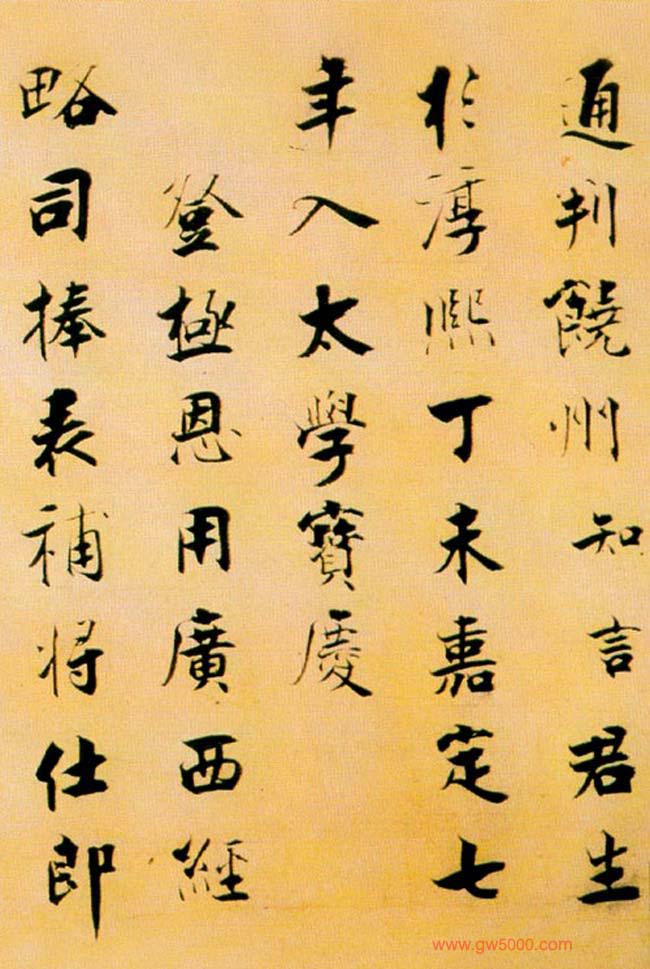 通判饒州知言君生
於淳熙丁未嘉定七
年入太學寶慶
登極恩用廣西經
略司捧表補將仕郎
www.gw5000.com